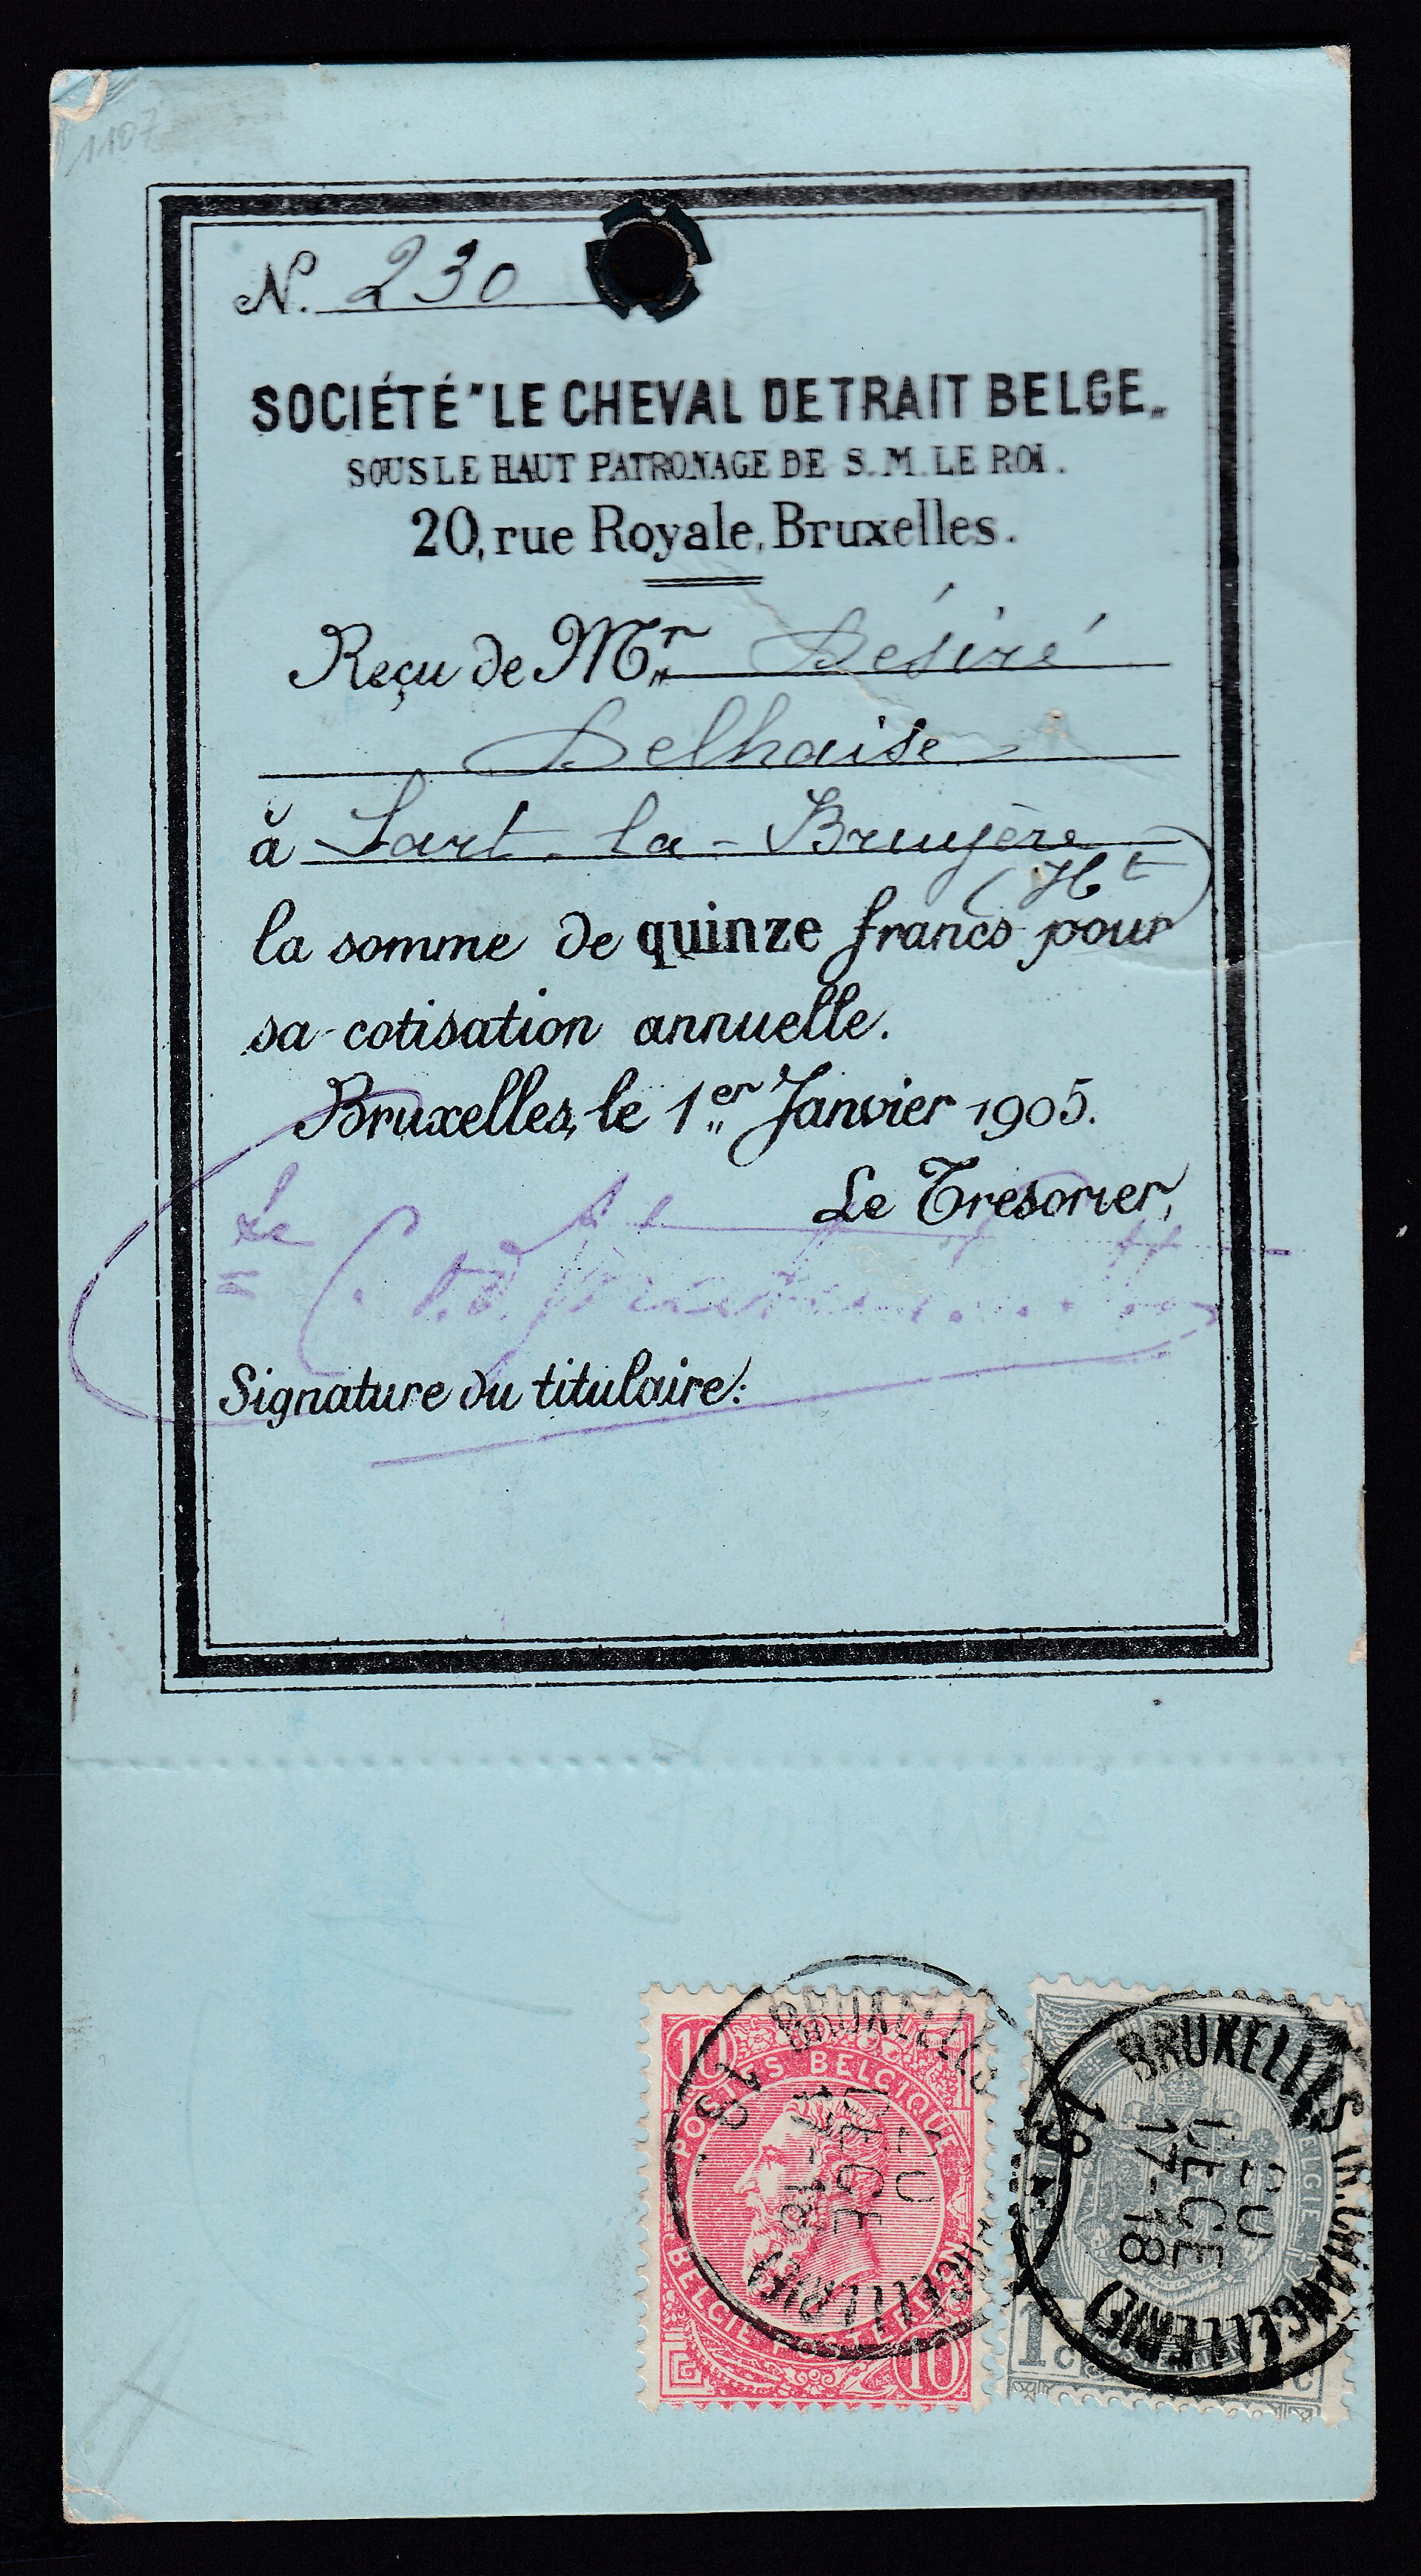 1107
N. 230
SOCIÉTÉ "LE CHEVAL DE TRAIT BELGE„
SOUS LE HAUT PATRONAGE DE S. M. LE ROI.
20, rue Royale, Bruxelles.
Reçu de Mr Désiré
Delhaise
à Sart-la-Bruyère
(Ht)
la somme de quinze francs pour
sa cotisation annuelle.
Bruxelles, le 1er Janvier 1905.
Le Trésorier,
Le
Signature du titulaire:
BRUXELLES
10
POSTES BELGIQUE
10
BRUXELLES (R. CHANCELLERIE)
17-18
1 c